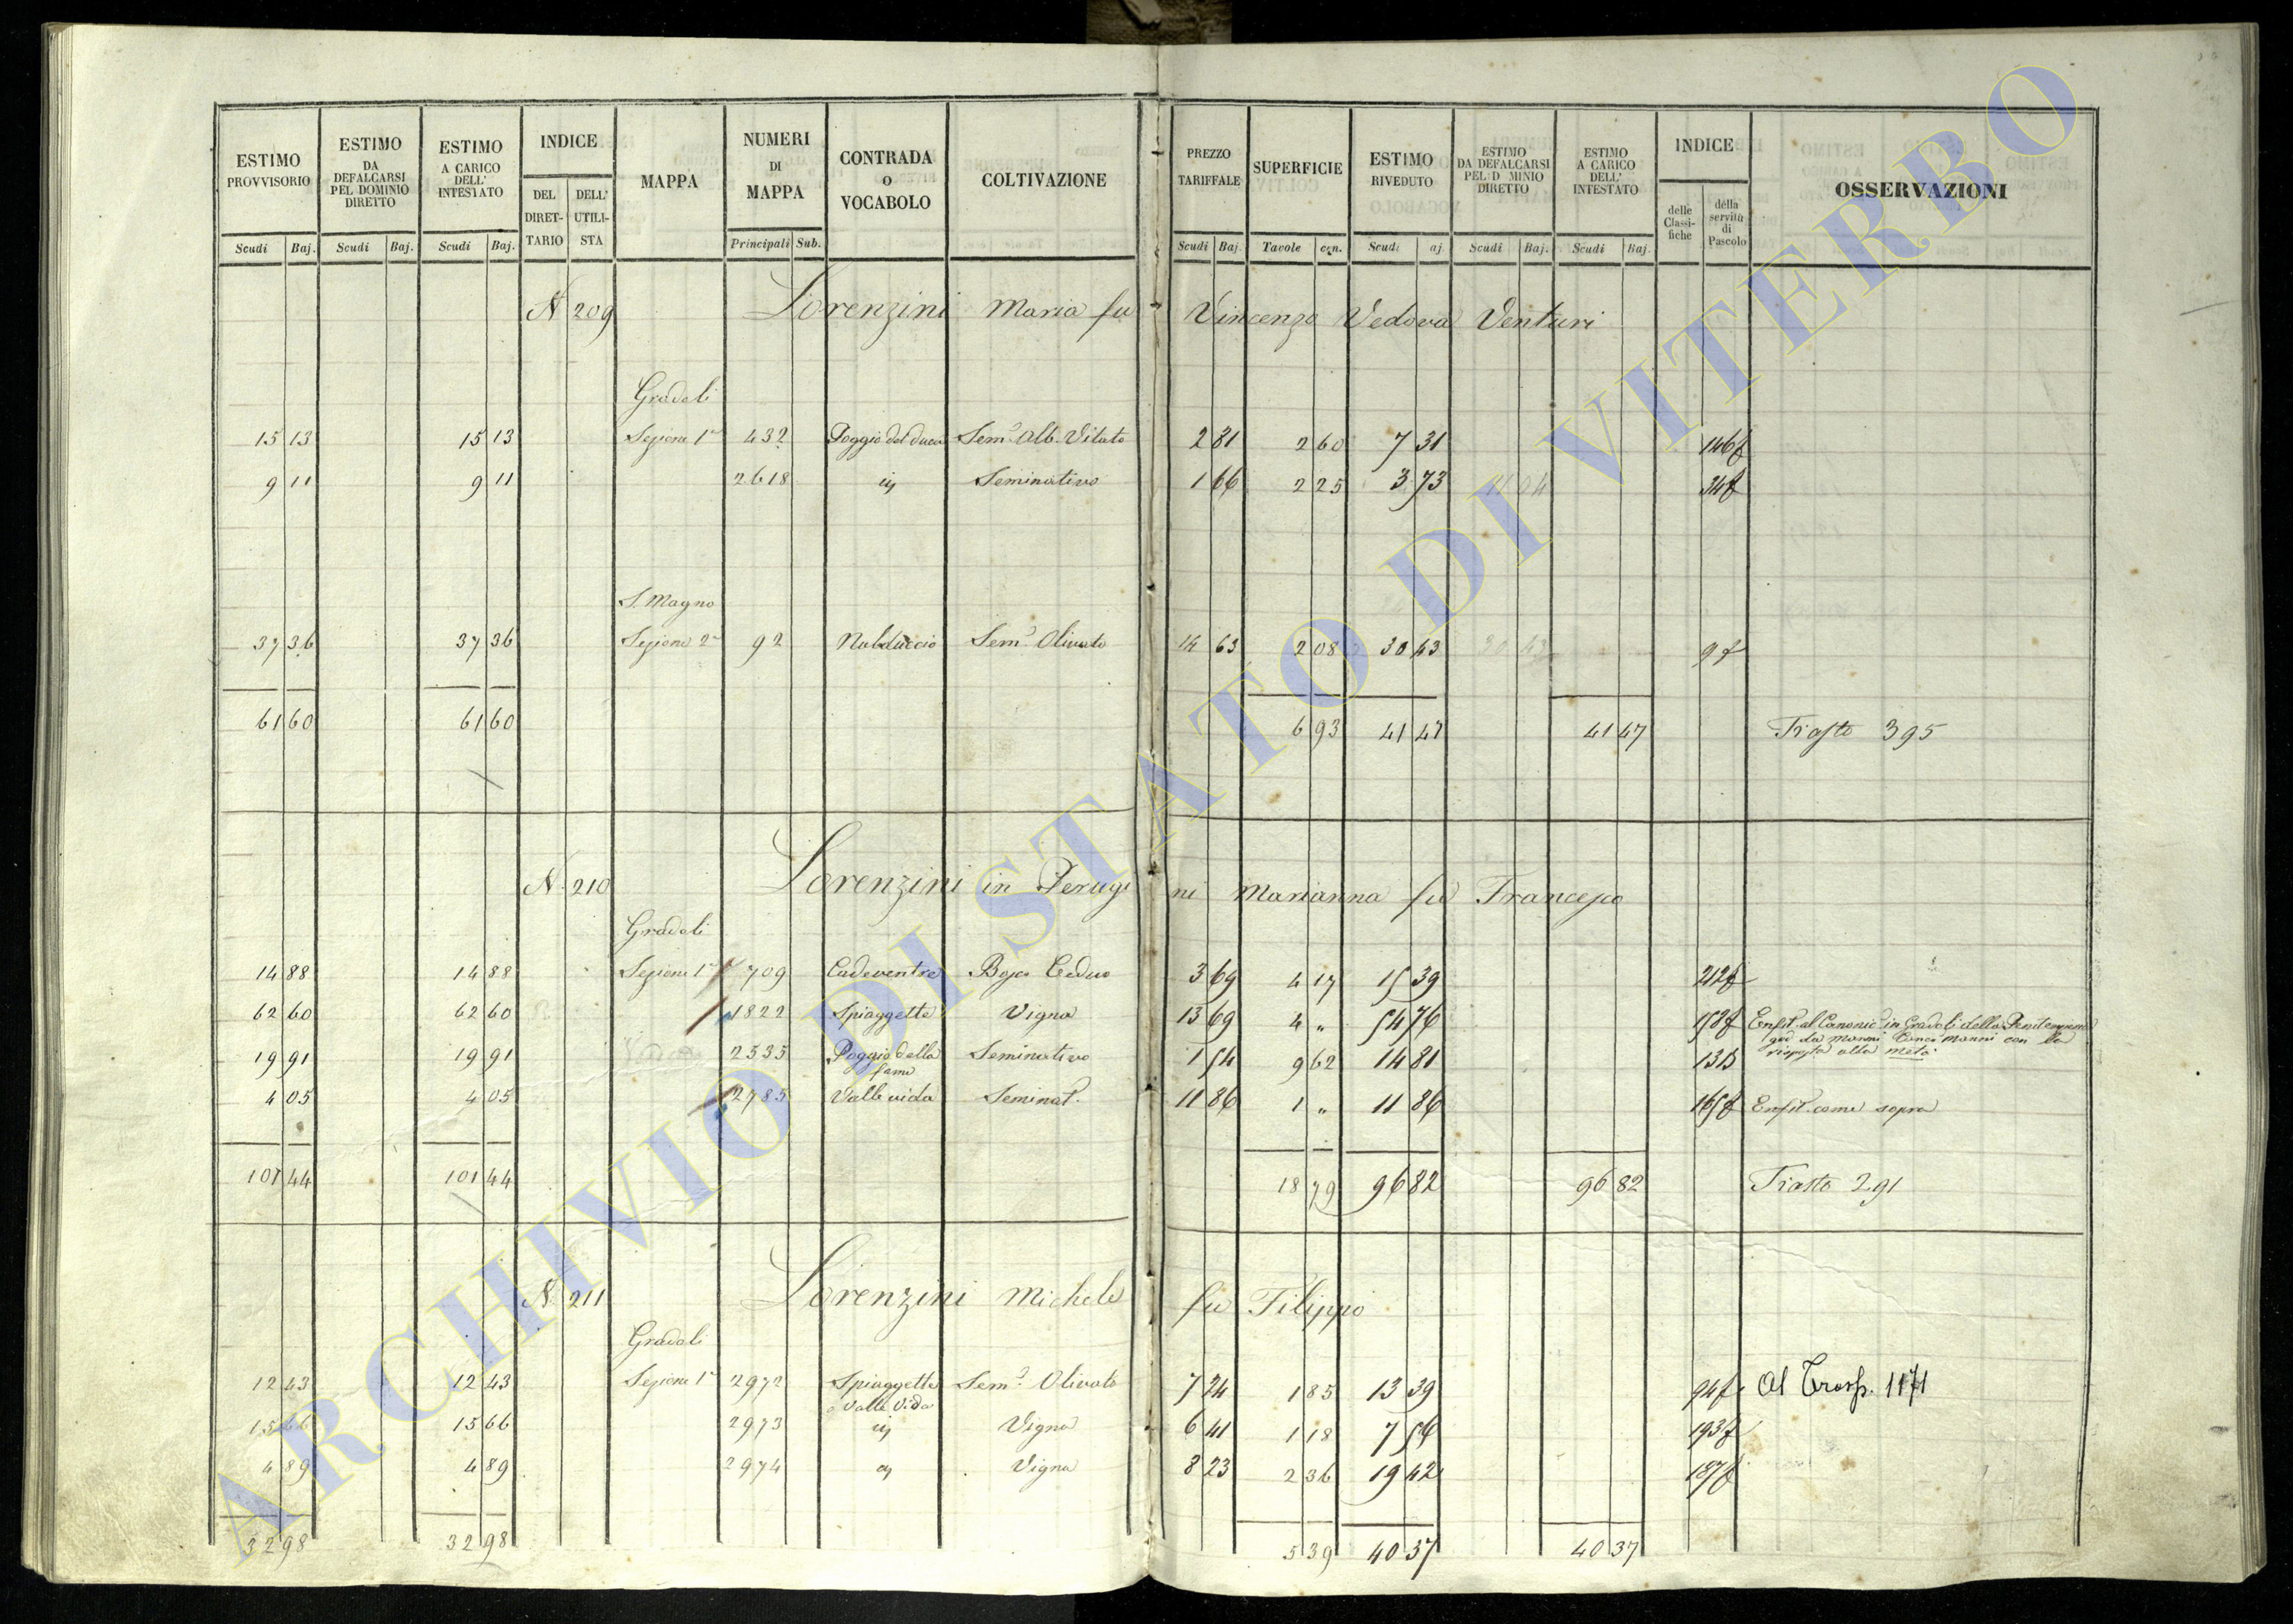 ESTIMO PROVVISORIO | ESTIMO DA DEFALCARSI PEL DOMINIO DIRETTO | ESTIMO A CARICO DELL' INTESTATO | INDICE DEL DIRETTARIO | DELL' UTILISTA | MAPPA | NUMERI DI MAPPA | CONTRADA O VOCABOLO | COLTIVAZIONE | PREZZO TARIFFALE | SUPERFICIE | ESTIMO RIVEDUTO | ESTIMO DA DEFALCARSI PEL D MINIO DIRETTO | ESTIMO A CARICO DELL' INTESTATO | INDICE delle Classifiche | della servitù di Pascolo | OSSERVAZIONI
Scudi Baj. | Scudi Baj. | Scudi Baj. | Principali Sub. | Scudi Baj. | Tavole cen. | Scudi aj. | Scudi Baj. | Scudi Baj.
N 209 Lorenzini Maria fu Vincenzo Vedova Venturi
Gradoli
15 13 | 15 13 | Sezione 1a | 432 | Poggio del duca | Sem.o Alb. Vitato | 2 81 | 2 60 | 7 31 | 146f
9 11 | 9 11 | 2618 | ig | Seminativo | 1 66 | 2 25 | 3 73 | 11 04 | 34f
S. Magno
37 36 | 37 36 | Sezione 2a | 92 | Sem.o Olivato | 14 63 | 2 08 | 30 43 | 30 43 | 9f
61 60 | 61 60 | 6 93 | 41 47 | 41 47 | Trasto 395
N. 210 Lorenzini in Perugini Marianna fu Francesco
Gradoli
14 88 | 14 88 | Sezione 1a | 709 | Cadeventre | Bosco Ceduo | 3 69 | 4 17 | 15 39 | 212f
62 60 | 62 60 | 1822 | Spiaggette | Vigna | 13 69 | 4 " | 54 76 | 158f | Enfit. al Canonic.o in Gradoli della Penitenzieria
già da Manni Manni con la
risposta alla metà
19 91 | 19 91 | 2535 | Poggio della fame | Seminativo | 1 54 | 9 62 | 14 81 | 131s
4 05 | 4 05 | 2785 | Valle vida | Seminat. | 11 86 | 1 " | 11 86 | 165f | Enfit. come sopra
101 44 | 101 44 | 18 79 | 96 82 | 96 82 | Trasto 291
N. 211 Lorenzini Michele fu Filippo
Gradoli
12 43 | 12 43 | Sezione 1a | 2972 | Spiaggette o Valle Vida | Sem.o Olivato | 7 24 | 1 85 | 13 39 | 94f | Al Trasp. 1171
15 66 | 15 66 | 2973 | ig | Vigna | 6 41 | 1 18 | 7 56 | 193f
4 89 | 4 89 | 2974 | ig | Vigna | 8 23 | 2 36 | 19 42 | 187f
32 98 | 32 98 | 5 39 | 40 37 | 40 37
ARCHIVIO DI STATO DI VITERBO